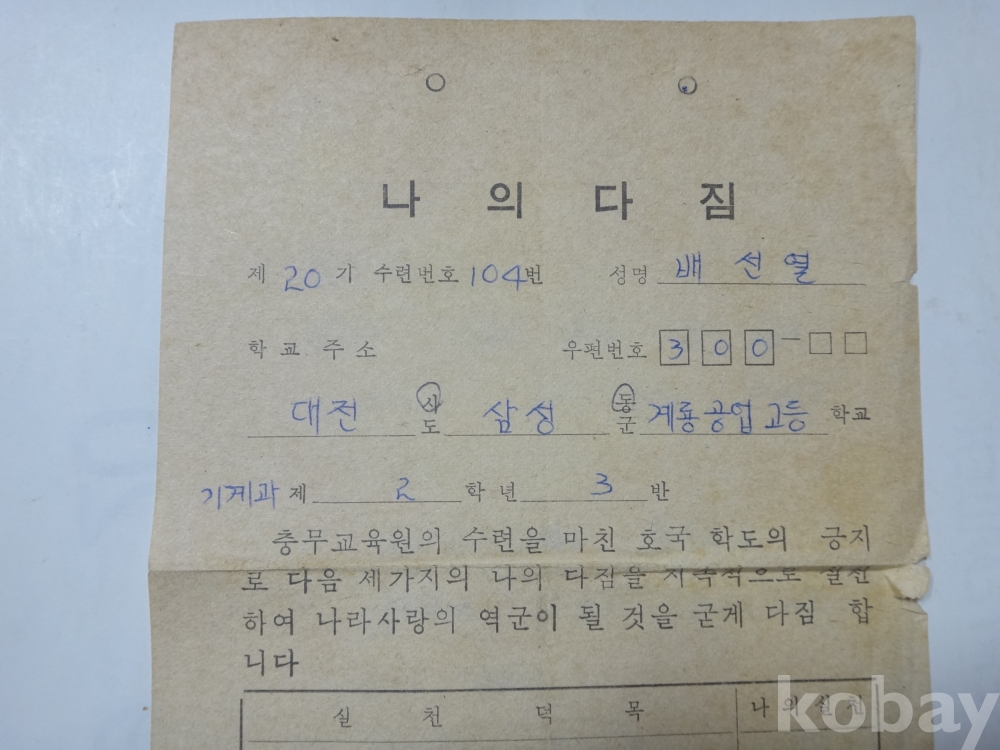 나 의 다 짐
제 20 기 수련번호 104번 성명 배 선 열
학 교 주 소 우편번호 300-
대전 시 도 삼성 동 군 계룡공업고등 학교
기계과 제 2 학 년 3 반
충무교육원의 수련을 마친 호국 학도의 긍지
로 다음 세가지의 나의 다짐을 지속적으로 실천
하여 나라사랑의 역군이 될 것을 굳게 다짐 합
니다
실 천 덕 목 나 의 실 천
kobay